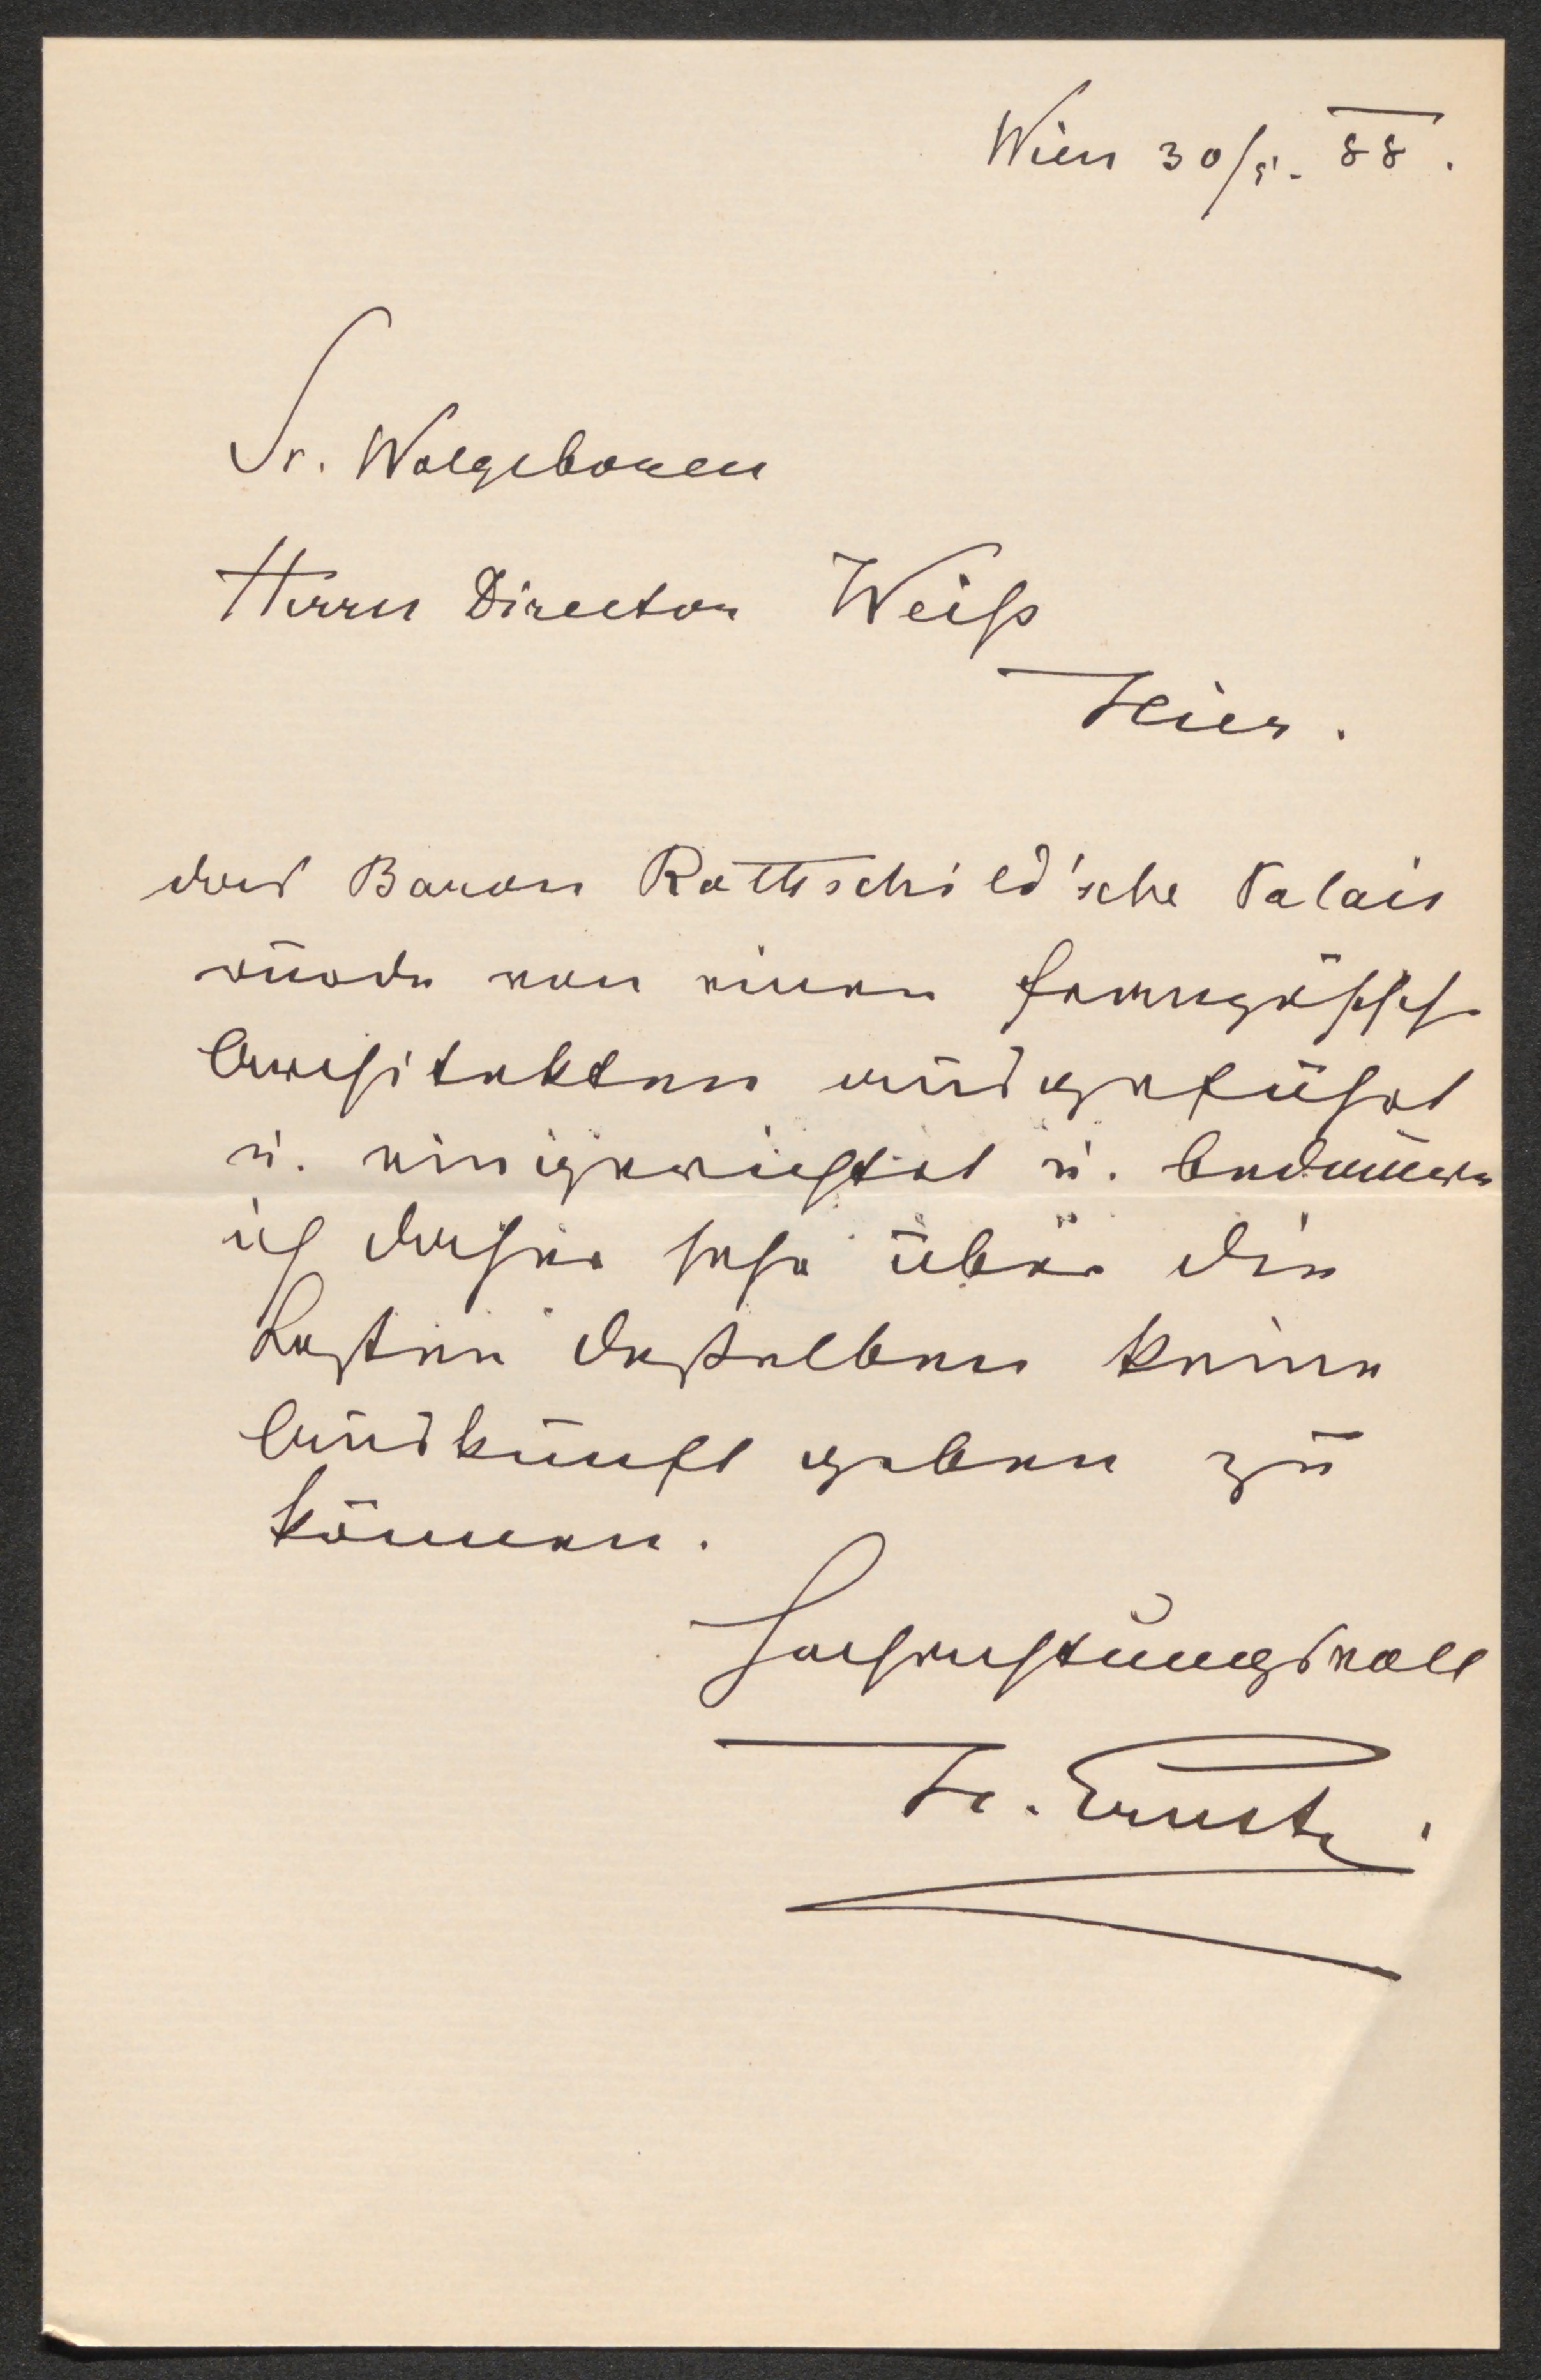 Wien 30/5. 88.
Sr. Wolgeboren
Herrn Director Weiß
Hier.
das Baron Rottschild'sche Palais
wurde von einem französisch
Architekten ausgeführt
u. eingerichtet u. bedauere
ich daher sehr über die
Kosten desselben keine
Auskunft geben zu
können.
Hochachtungsvoll
H. Ernst